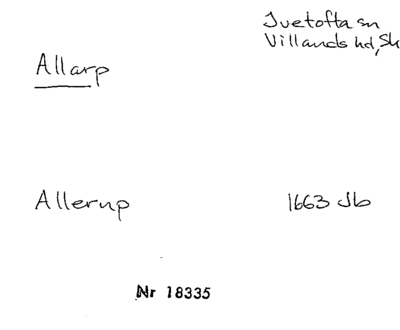 Ivetofta sn
Villands hd, Sk
Allarp
Allerup 1663 Jb
Nr 18335